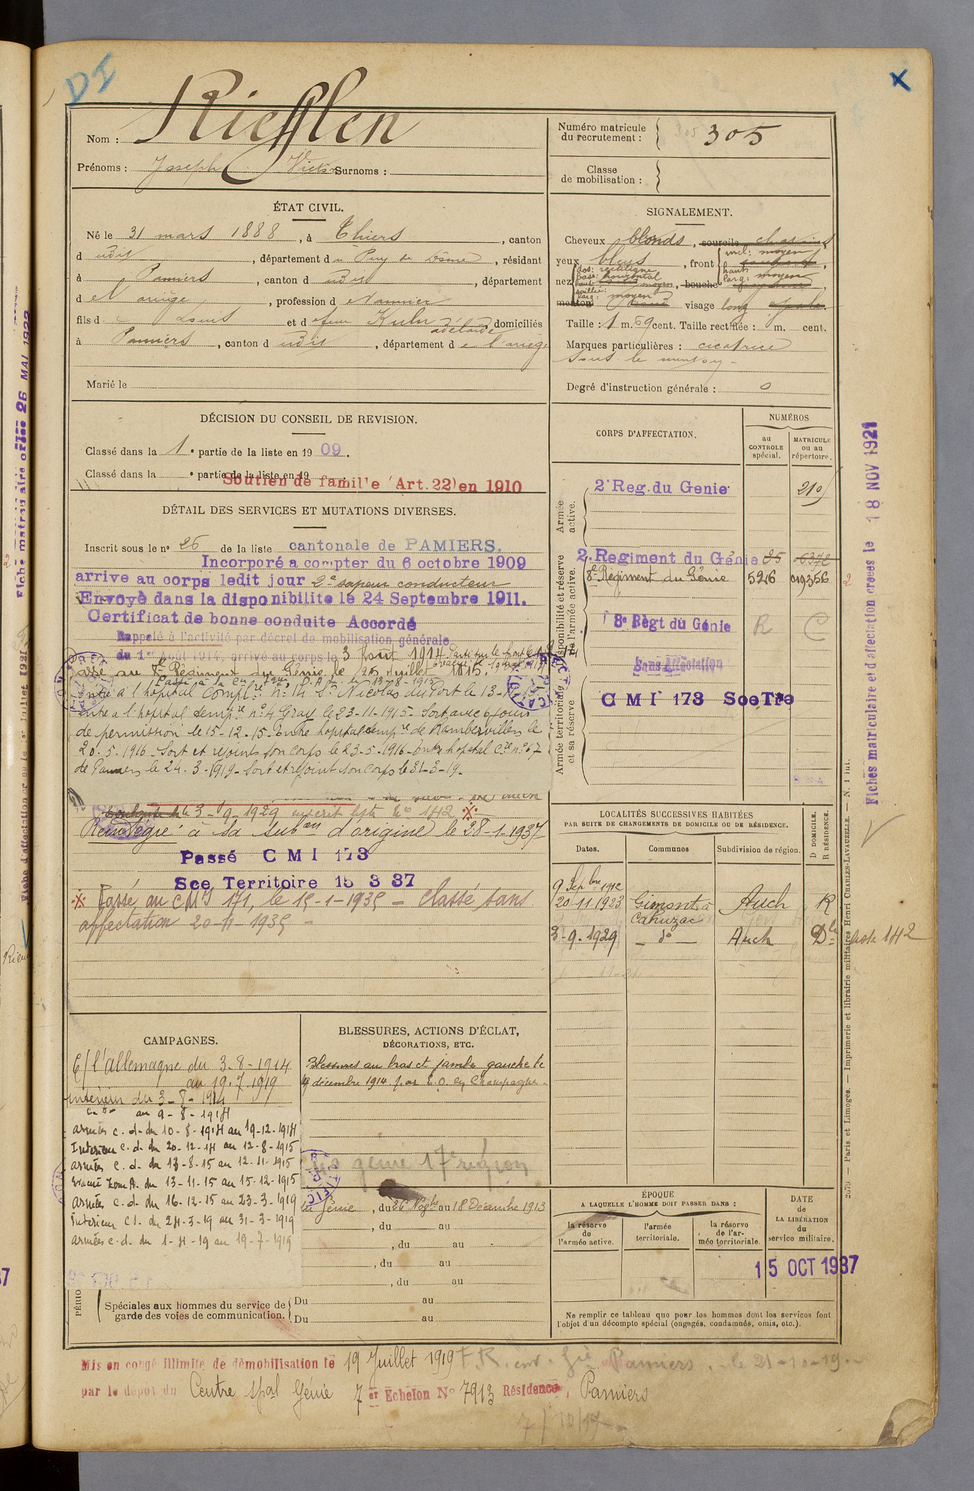 DI
X
Nom : Riefflen
Prénoms : Joseph Victor Surnoms :
Numéro matricule
du recrutement : 305
Classe
de mobilisation :
ÉTAT CIVIL.
Né le 31 mars 1888, à Thiers, canton
dudit, département du Puy de Dôme, résidant
à Pamiers, canton dudit, département
d et ariège, profession d
fils de Louis et de feue Kuhn adélaïde domiciliés
à Pamiers, canton dudit, département de l'ariège
Marié le
SIGNALEMENT.
Cheveux blonds, sourcils
yeux bleus, front incl: moyen
haut:
larg: moyen
nez dos: rectiligne
base: horizontal
haut: moyen, bouche
saillie:
larg: moyen
menton visage long
Taille : 1 m. 69 cent. Taille rectifiée : m. cent.
Marques particulières : cicatrice
sous le menton
Degré d'instruction générale : 0
DÉCISION DU CONSEIL DE REVISION.
Classé dans la 1e partie de la liste en 1909.
Classé dans la e partie de la liste en 19
Soutien de famille (Art. 22) en 1910
DÉTAIL DES SERVICES ET MUTATIONS DIVERSES.
Inscrit sous le n° 26 de la liste cantonale de PAMIERS.
Incorporé a compter du 6 octobre 1909
arrive au corps ledit jour 2e sapeur conducteur
Envoyé dans la disponibilite le 24 Septembre 1911.
Certificat de bonne conduite Accordé
Rappelé à l'activité par décret de mobilisation générale
du 1er Août 1914, arrivé au corps le 3 Août 1914
Passé au 7e Régiment du Génie le 26 juillet 1915.
Entré à l'hôpital Complre n° 14 St Nicolas du Port le 13-11
Entré à l'hôpital temp.re n° 4 Gray le 23-11-1915. Sort avec 6 jours
de permission le 15-12-15. Entré hôpital temp.re de Rambervillers le
20-5-1916. Sort et rejoint son corps le 23-5-1916. Entré hôpital Cre n° 47
de Pamiers le 24-3-1919. Sort et rejoint son corps le 31-3-19.
le 3-9-1929
Réintégré à sa Subon d'origine le 28-1-1937
Passé CMI 173
Sce Territoire 15 3 37
※ Passé au CMI 171, le 15-1-1935 - Classé sans
affectation 20-11-1935 -
CORPS D'AFFECTATION.
NUMÉROS
au
CONTROLE
spécial.
MATRICULE
ou au
répertoire.
Armée
active.
2e Reg. du Genie 210
Disponibilité et réserve
de l'armée active.
2e Regiment du Génie 35 6372
8e Régiment du Génie 526 019356
8e Régt du Génie R C
Armée territoriale
et sa réserve
Sans Affectation
CMI 173 Sce Tre
LOCALITÉS SUCCESSIVES HABITÉES
PAR SUITE DE CHANGEMENTS DE DOMICILE OU DE RÉSIDENCE.
Dates. Communes Subdivision de région. D DOMICILE. R RÉSIDENCE.
9 Sepbre 1912
20-11-1923 Gimont-Cahuzac Auch R
3-9-1929 - do - Auch Dle
CAMPAGNES.
C/ l'Allemagne du 3-8-1914
au 19-7-1919
Intérieur du 3-8-1914
au 9-8-1914
Armées c.d. du 10-8-1914 au 19-12-1914
Intérieur c.d. du 20-12-14 au 12-8-1915
Armées c.d. du 13-8-15 au 12-11-1915
Evacué Zone A. du 13-11-15 au 15-12-1915
Armées c.d. du 16-12-15 au 23-3-1919
Intérieur c.s. du 24-3-19 au 31-3-1919
Armées c.d. du 1-4-19 au 19-7-1919
BLESSURES, ACTIONS D'ÉCLAT,
DÉCORATIONS, ETC.
Blessures au bras et jambe gauche le
décembre 1914 par E.O. en Champagne
génie 17e région
Génie, du 26 Novbre au 18 Décembre 1913
, du au
, du au
, du au
, du au
Spéciales aux hommes du service de
garde des voies de communication.
Du au
Du au
ÉPOQUE
A LAQUELLE L'HOMME DOIT PASSER DANS :
la réserve
de
l'armée active.
l'armée
territoriale.
la réserve
de l'ar-
mée territoriale.
DATE
de
LA LIBÉRATION
du
service militaire.
15 OCT 1937
Ne remplir ce tableau que pour les hommes dont les services font
l'objet d'un décompte spécial (engagés, condamnés, omis, etc.).
Mis en congé illimité de démobilisation le 19 Juillet 1919
par le dépôt du Centre spal Génie 7 er Echelon N° 7913 Résidence, Pamiers
Fiches matriculaire et d'affectation créées le 18 NOV 1921
Paris et Limoges. — Imprimerie et librairie militaires Henri CHARLES-LAVAUZELLE.